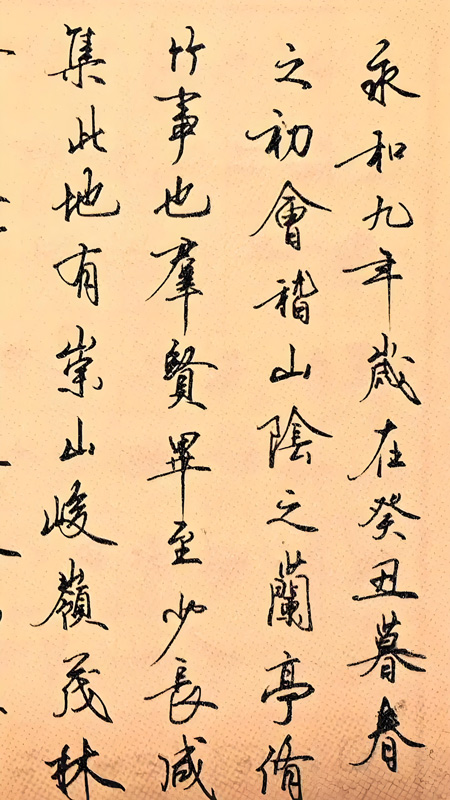 永和九年歲在癸丑暮春
之初會稽山陰之蘭亭脩
竹事也羣賢畢至少長咸
集此地有崇山峻嶺茂林